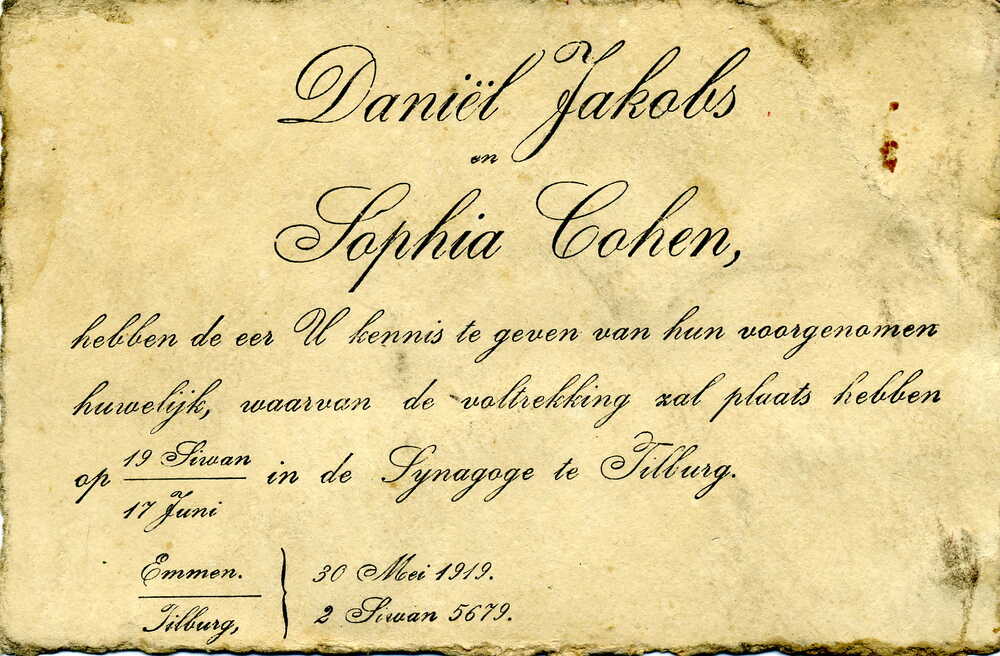 Daniël Jakobs
en
Sophia Cohen,
hebben de eer U kennis te geven van hun voorgenomen
huwelijk, waarvan de voltrekking zal plaats hebben
op 19 Siwan in de Synagoge te Tilburg.
17 Juni
Emmen. 30 Mei 1919.
Tilburg, 2 Siwan 5679.